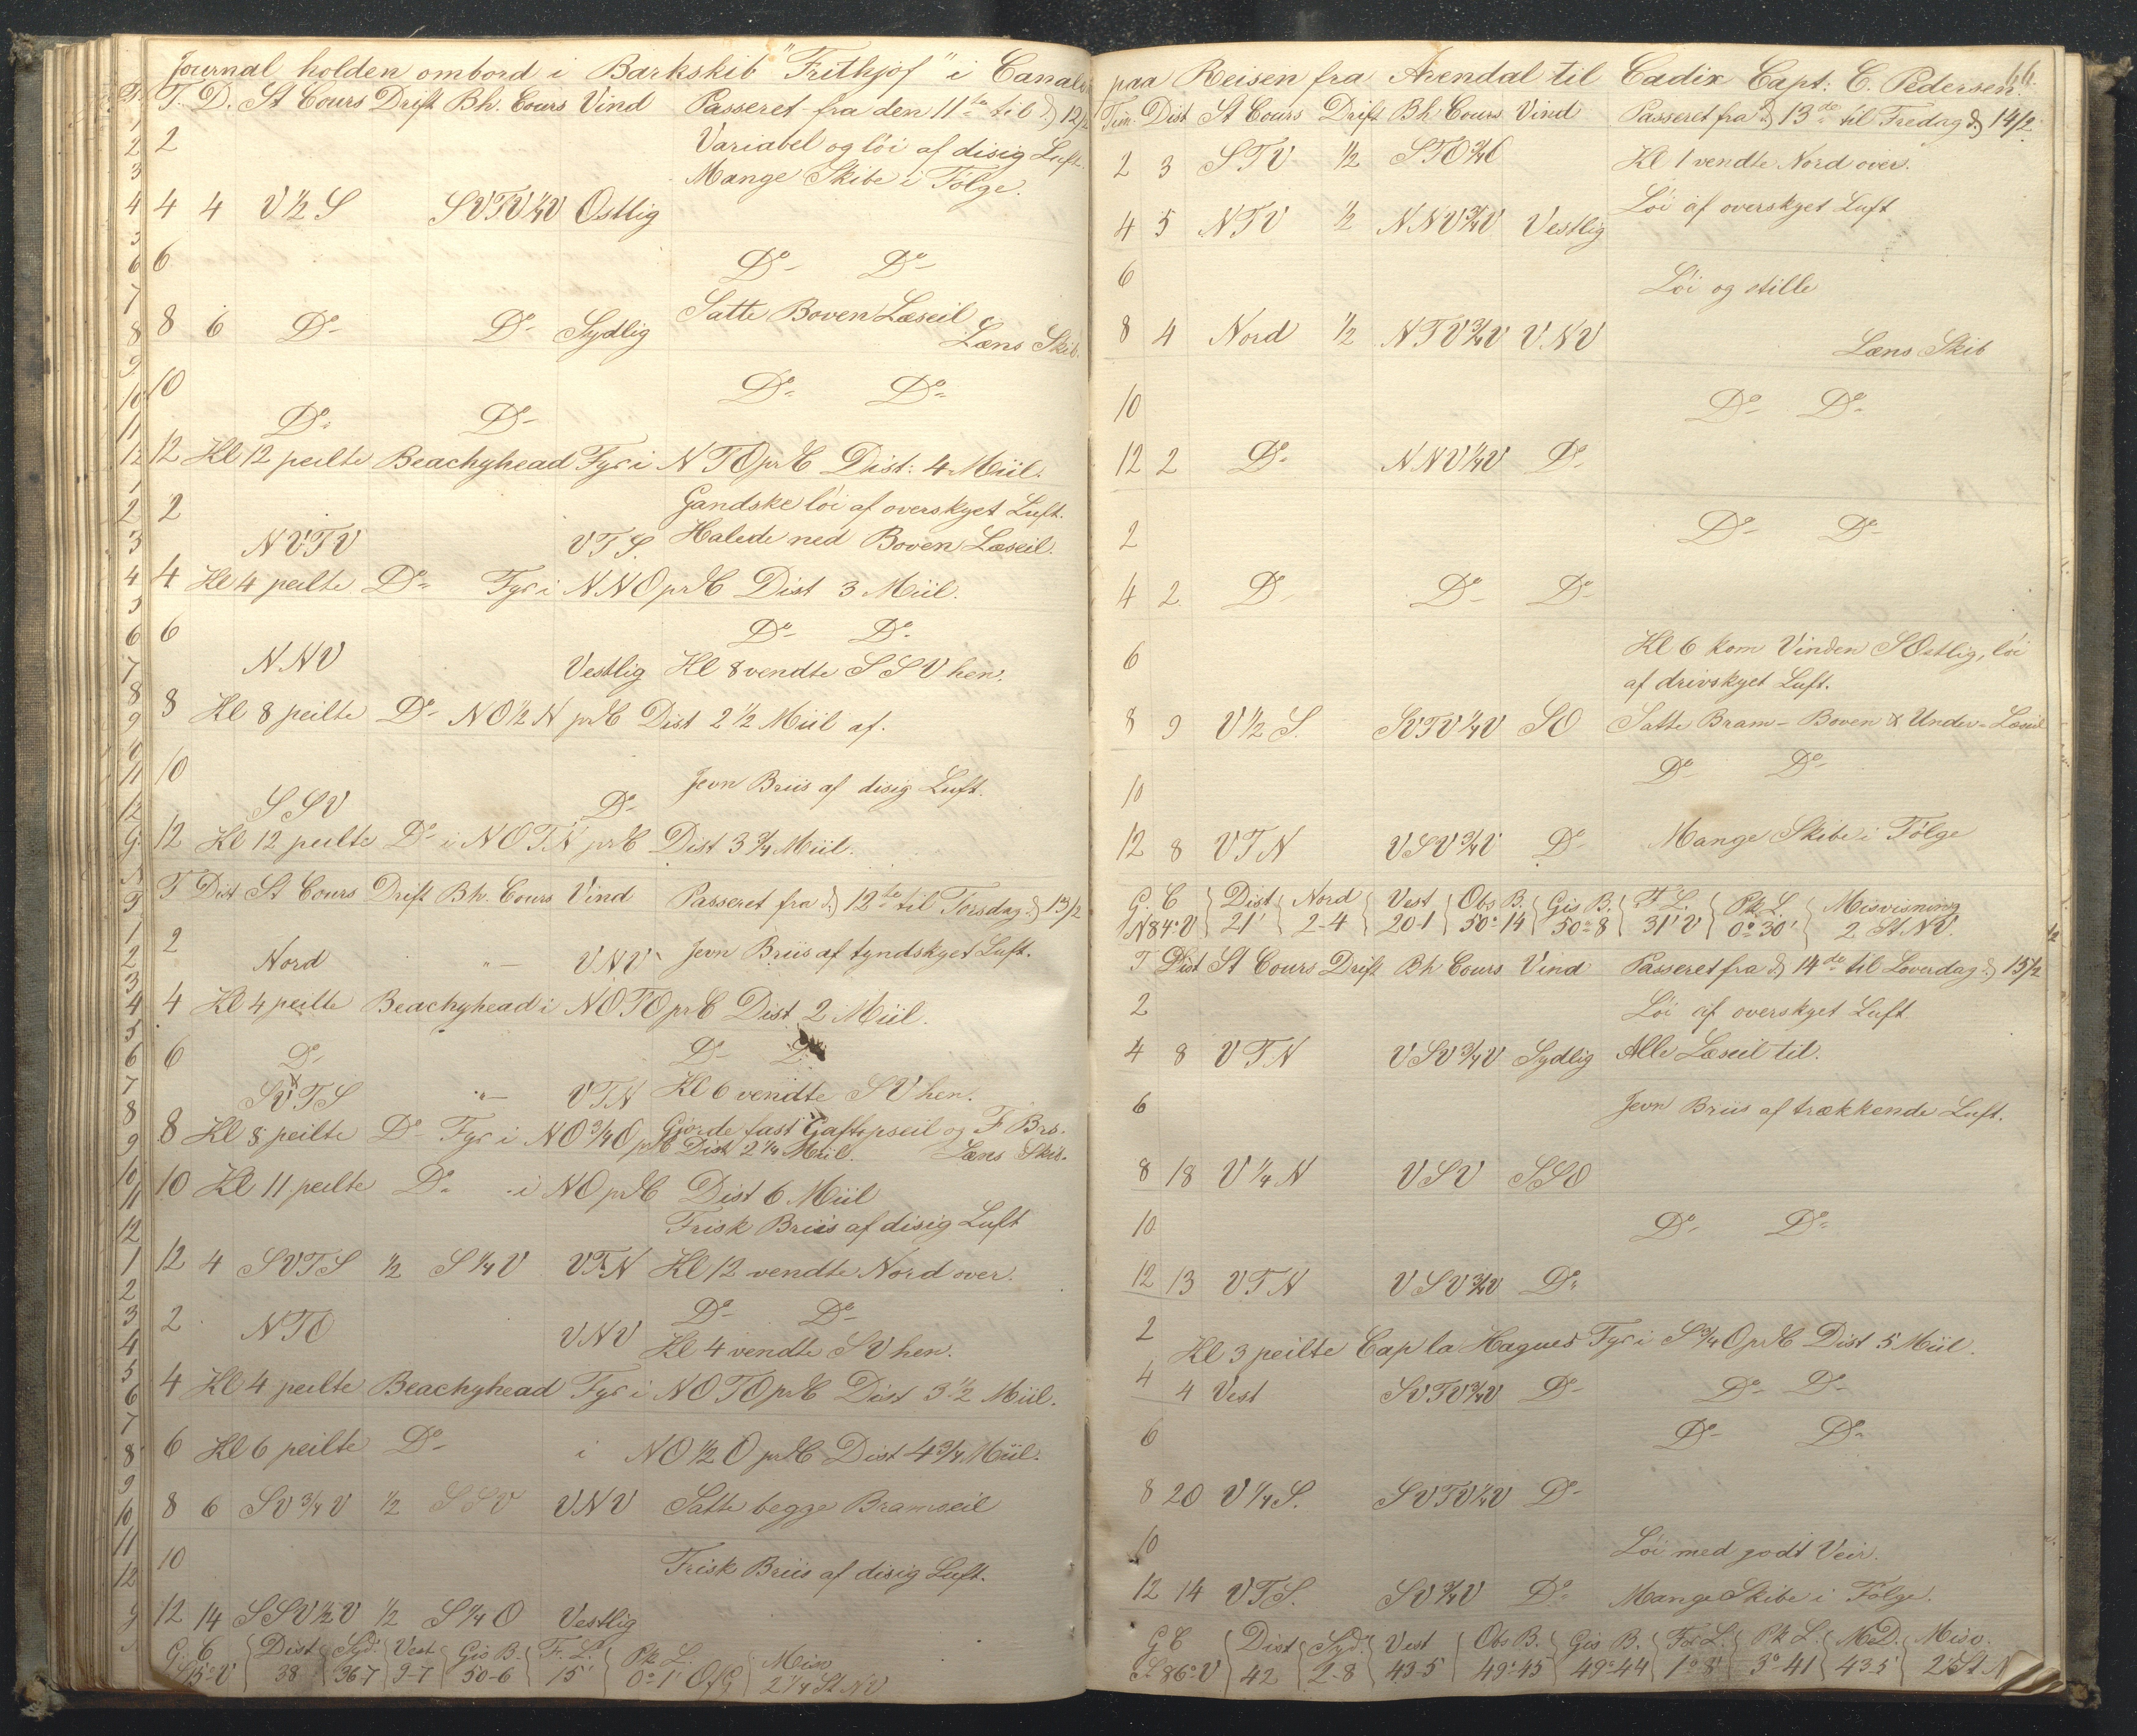 Journal holden ombord i Barkskib "Frithjof" i Canalen
T. D. St Cours Drift Bh. Cours Vind Passeret fra den 11te til d 12/2
2 Variabel og löi af disig Luft.
Mange Skibe i Følge.
4 4 V 1/2 S SVTV 1/4 V Ostlig
6 Do- Do-
Satte Boven Læseil
8 6 Do- Do- Sydlig Læns Skib.
10 Do- Do-
Do- Do-
12 Kl 12 peilte Beachyhead Fyr i NTO pr C Dist: 4 Miil.
2 Gandske löi af overskyet Luft.
NVTV VTS. Halede ned Boven Læseil.
4 Kl 4 peilte Do- Fyr i NNO pr C Dist 3 Miil.
6 Do- Do-
NNV Vestlig Kl 8 vendte SSV hen.
8 Kl 8 peilte Do- NO 1/2 N pr C Dist 2 1/2 Miil af.
10 Jevn Briis af disig Luft.
SSV Do-
12 Kl 12 peilte Do- i NOTN pr C Dist 3 3/4 Miil.
T Dist St Cours Drift Bh. Cours Vind Passeret fra d 12te til Torsdag d 13/2
2 Jevn Briis af tyndskyet Luft.
Nord "- VNV
4 Kl 4 peilte Beachyhead i NOTO pr C Dist 2 Miil.
6 Do- Do-
SVTS "- VTN Kl 6 vendte SV hen.
Gjorde fast Gaftopseil og F Brs.
8 Kl 8 peilte Do- Fyr i NO 3/4 O pr C Dist 2 1/4 Miil. Læns Skib.
10 Kl 11 peilte Do- i NO pr C Dist 6 Miil
Frisk Briis af disig Luft
12 4 SVTS 1/2 S 1/4 V VTN Kl 12 vendte Nord over.
2 Do- Do-
NTO VNV Kl 4 vendte SV hen.
4 Kl 4 peilte Beachyhead Fyr i NOTO pr C Dist 3 1/2 Miil.
6 Kl 6 peilte Do- i NO 1/2 O pr C Dist 4 3/4 Miil.
8 6 SV 3/4 V 1/2 SSV VNV Satte begge Bramseil
10 Frisk Briis af disig Luft.
12 14 SSV 1/2 V 1/2 S 1/4 O Vestlig
G. C Dist Syd. Vest Gis B. F. L. Pk L. Misv
S 15° V 38 36-7 9-7 50-6 15' 0°-1' O f G 2 1/4 St NV
paa Reisen fra Arendal til Cadix Capt: C. Pedersen. 66.
Tim. Dist St Cours Drift Bh Cours Vind Passeret fra d 13de til Fredag d 14/2
2 3 STV 1/2 STO 3/4 O Kl 1 vendte Nord over.
Löi af overskyet Luft
4 5 NTV 1/2 NNV 3/4 V Vestlig
6 Löi og stille
8 4 Nord 1/2 NTV 3/4 V VNV Læns Skib
10 Do- Do-
12 2 Do- NNV 1/4 V Do-
2 Do- Do-
4 2 Do- Do- Do-
6 Kl 6 kom Vinden SOstlig, löi
af drivskyet Luft.
8 9 V 1/2 S. SVTV 1/4 V SO Satte Bram- Boven & Under- Læseil
10 Do- Do-
12 8 VTN VSV 3/4 V Do- Mange Skibe i Følge
G. C Dist Nord Vest Obs B. Gis B. F. L. Pk. L. Misvisning
N 84° V 21' 2-4 20-1 50°-14 50°-8 31' V 0°30' 2 St NV.
T Dist St Cours Drift Bh Cours Vind Passeret fra d 14de til Loverdag d 15/2
2 Löi af overskyet Luft
4 8 VTN VSV 3/4 V Sydlig Alle Læseil til.
6 Jevn Briis af trækkende Luft.
8 18 V 1/4 N VSV SSO
10 Do- Do-
12 13 VTN VSV 3/4 V Do-
2 Kl 3 peilte Cap la Hagues Fyr i S 3/4 O pr C Dist 5 Miil.
4 4 Vest SVTV 3/4 V Do- Do- Do-
6 Do- Do-
8 20 V 1/4 S. SVTV 1/4 V Do-
10 Löi med godt Veir.
12 14 VTS. SV 3/4 V Do- Mange Skibe i Følge.
G C Dist Syd. Vest Obs B. Gis B. For L. Pk L. M.D. Misv.
S 86° V 42 2-8 43-5 49°45 49°-44 1°8' 3°-41 43-5 2 St N